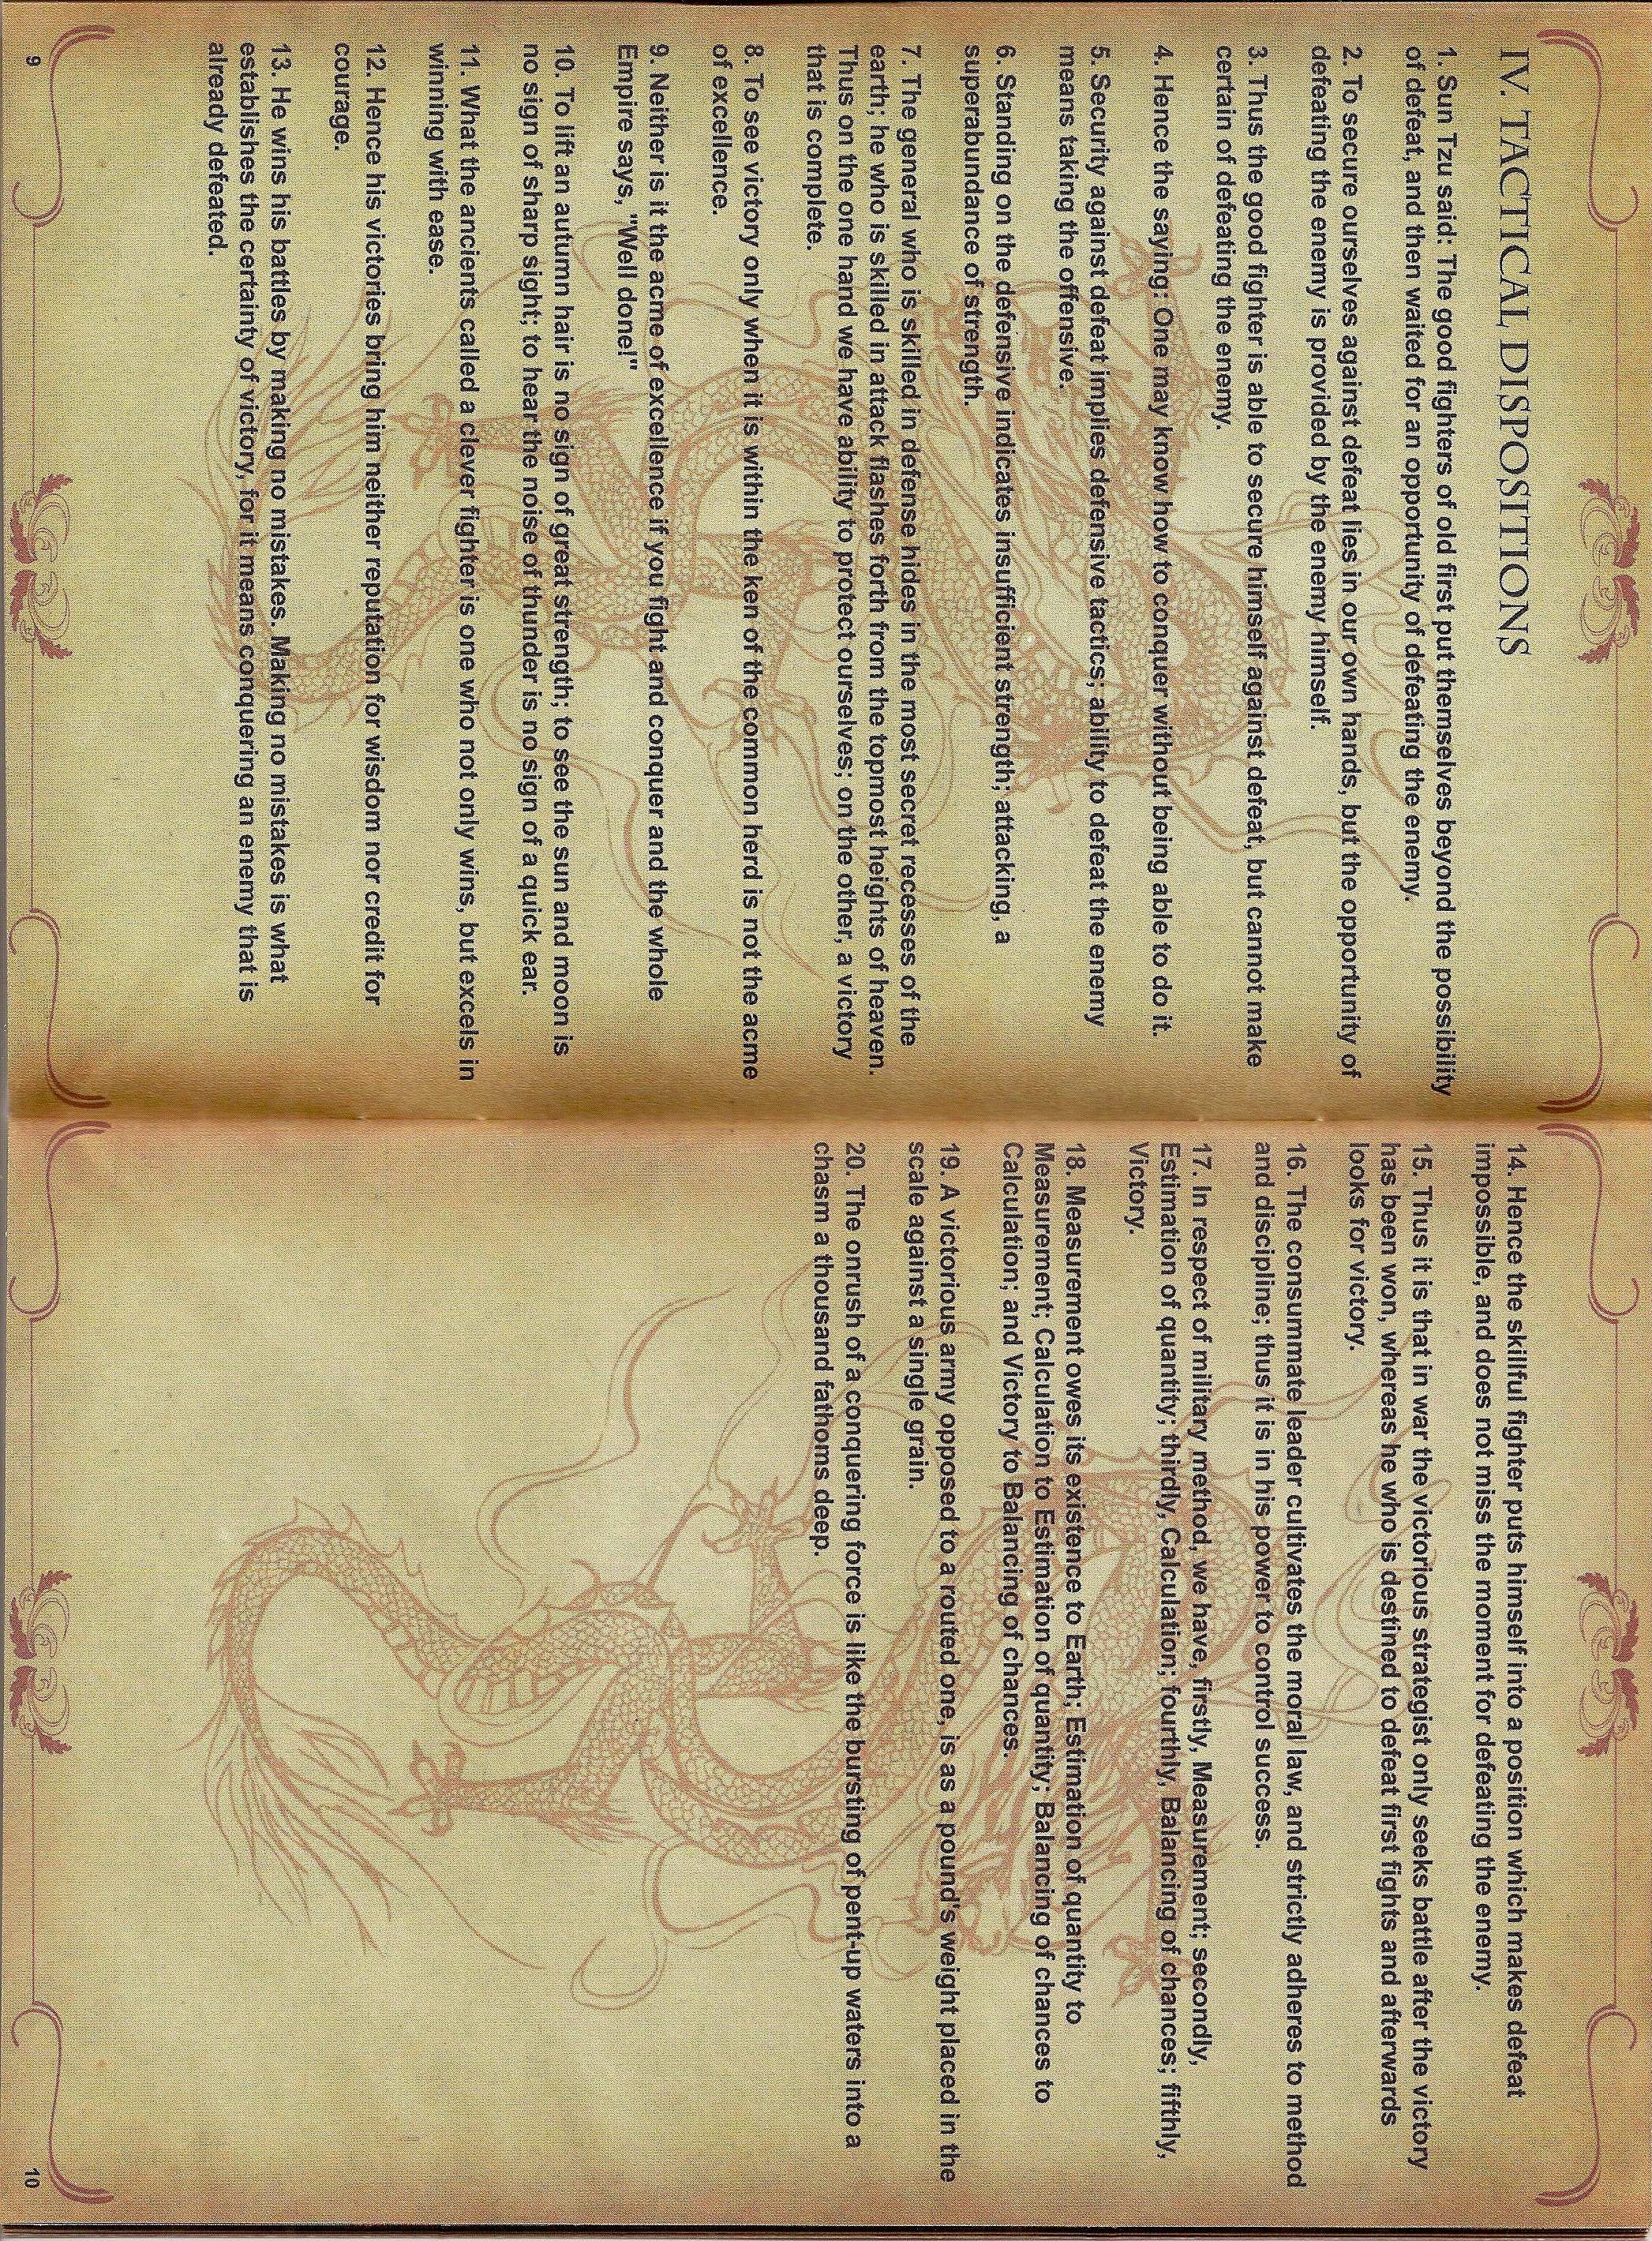 IV. TACTICAL DISPOSITIONS
1. Sun Tzu said: The good fighters of old first put themselves beyond the possibility
of defeat, and then waited for an opportunity of defeating the enemy.
2. To secure ourselves against defeat lies in our own hands, but the opportunity of
defeating the enemy is provided by the enemy himself.
3. Thus the good fighter is able to secure himself against defeat, but cannot make
certain of defeating the enemy.
4. Hence the saying: One may know how to conquer without being able to do it.
5. Security against defeat implies defensive tactics; ability to defeat the enemy
means taking the offensive.
6. Standing on the defensive indicates insufficient strength; attacking, a
superabundance of strength.
7. The general who is skilled in defense hides in the most secret recesses of the
earth; he who is skilled in attack flashes forth from the topmost heights of heaven.
Thus on the one hand we have ability to protect ourselves; on the other, a victory
that is complete.
8. To see victory only when it is within the ken of the common herd is not the acme
of excellence.
9. Neither is it the acme of excellence if you fight and conquer and the whole
Empire says, "Well done!"
10. To lift an autumn hair is no sign of great strength; to see the sun and moon is
no sign of sharp sight; to hear the noise of thunder is no sign of a quick ear.
11. What the ancients called a clever fighter is one who not only wins, but excels in
winning with ease.
12. Hence his victories bring him neither reputation for wisdom nor credit for
courage.
13. He wins his battles by making no mistakes. Making no mistakes is what
establishes the certainty of victory, for it means conquering an enemy that is
already defeated.
9
14. Hence the skillful fighter puts himself into a position which makes defeat
impossible, and does not miss the moment for defeating the enemy.
15. Thus it is that in war the victorious strategist only seeks battle after the victory
has been won, whereas he who is destined to defeat first fights and afterwards
looks for victory.
16. The consummate leader cultivates the moral law, and strictly adheres to method
and discipline; thus it is in his power to control success.
17. In respect of military method, we have, firstly, Measurement; secondly,
Estimation of quantity; thirdly, Calculation; fourthly, Balancing of chances; fifthly,
Victory.
18. Measurement owes its existence to Earth; Estimation of quantity to
Measurement; Calculation to Estimation of quantity; Balancing of chances to
Calculation; and Victory to Balancing of chances.
19. A victorious army opposed to a routed one, is as a pound's weight placed in the
scale against a single grain.
20. The onrush of a conquering force is like the bursting of pent-up waters into a
chasm a thousand fathoms deep.
10